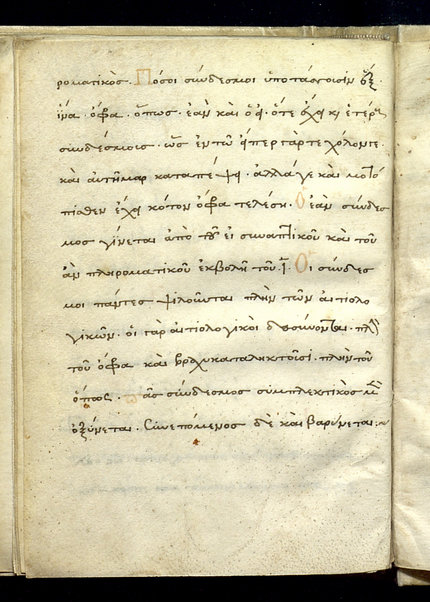 ροματικὸς. Πόσοι σύνδεσμοι ὑποτάσσουσιν ἕξ.
ἵνα. ὄφρα. ὅπως. ἐὰν καὶ
συνδέσμοις. ὡς ἐν τῶ εἴπερ γάρ τε χόλον γε.
καὶ αὐτῆμαρ καταπέψη. ἀλλάγε καὶ με τό
πισθεν ἔχη κότον ὄφρα τελέση. Ὁ ἐὰν σύνδεσ
μος γίνεται ἀπὸ τοῦ εἰ συναπτικοῦ καὶ τοῦ
ἂν πληροματικοῦ ἐκβολῆ τοῦ ϊ. Οἱ σύνδεσ
μοι πάντες ψιλοῦνται πλὴν τῶν αἰτιολο
γικῶν. οἱ γὰρ αἰτιολογικοὶ δασύνονται. πλὴν
τοῦ ὄφρα καὶ βραχυκαταληκτοῦσι. πλὴν τοῦ
ὅπως. Πᾶς σύνδεσμος συμπλεκτικὸς μὲν
ὀξύνεται. Συνεπόμενος δὲ καὶ βαρύνεται